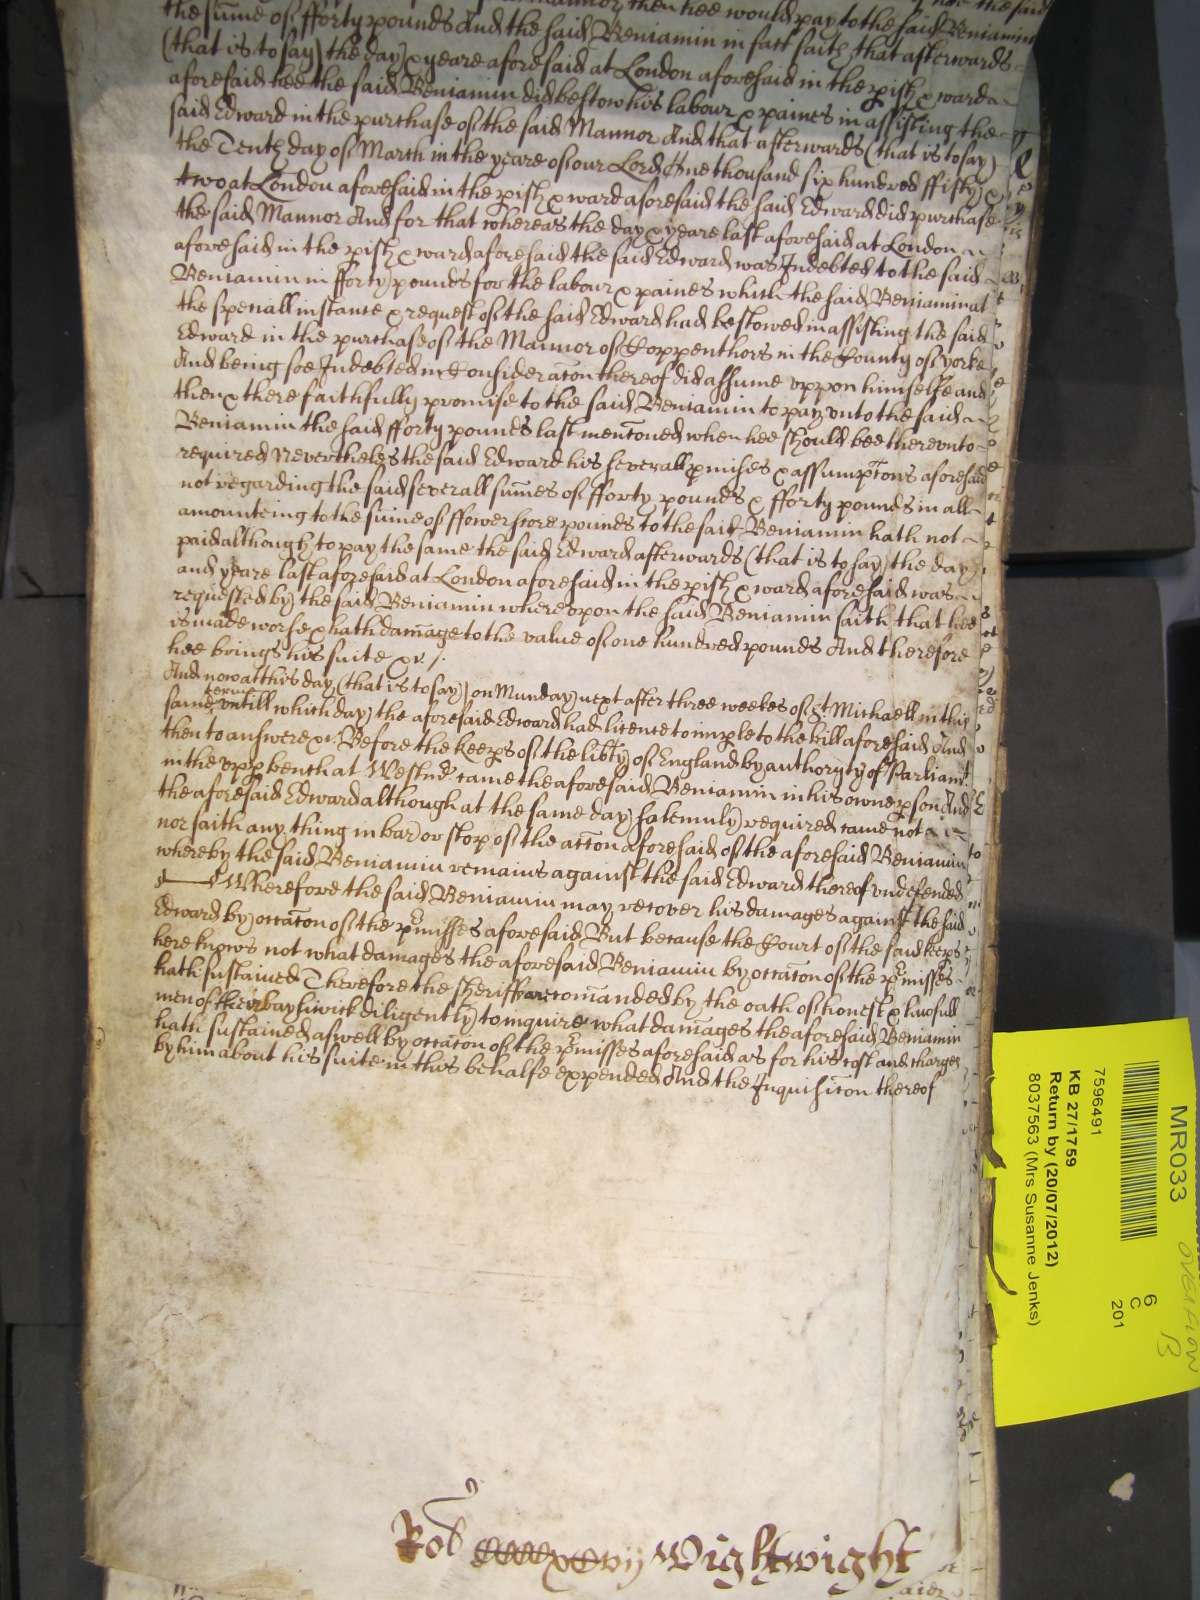 the sume of fforty pounds And the said Beniamin in fact saith that afterwards
(that is to say) the day & yeare aforesaid at London aforesaid in the pish & warda
aforesaid hee the said Beniamin did bestow his labour & paines in assisting the
said Edward in the purchase of the said Mannor And that afterwards (that is to say)
the Tenth day of March in the yeare of our Lord One thousand six hundred ffifty &
two at London aforesaid in the pish & ward aforesaid the said Edward did purchase
the said Mannor And for that whereas the day & yeare last aforesaid at London
aforesaid in the pish & ward aforesaid the said Edward was Indebted to the said
Beniamin in fforty pounds for the labour & paines which the said Beniamin at
the speciall instance & request of the said Edward had bestowed in assisting the said
Edward in the purchase of the Mannor of Coppenthorp in the County of Yorke
And being soe Indebted in Consideracon thereof did assume uppon himselfe and
then & there faithfully promise to the said Beniamin to pay unto the said
Beniamin the said fforty pounds last menconed when hee should bee thereunto
required Neverthelesse the said Edward his severall pmises & assumpcons aforesaid
not regarding the said severall sumes of fforty pounds & fforty pounds in all
amounteing to the sume of ffowerscore pounds to the said Beniamin hath not
paid although to pay the same the said Edward afterwards (that is to say) the day
and yeare last aforesaid at London aforesaid in the pish & ward aforesaid was
requested by the said Beniamin whereupon the said Beniamin saith that hee
is made worse & hath damage to the value of one hundred pounds And therefore
hee brings his suite &c /.
And now at this day (that is to say) on Munday next after three weekes of St Michaell in this
same terme untill which day the aforesaid Edward had licence to imple to the bill aforesaid And
then to answere &c Before the keeps of the libty of England by authoryty of Parliamt
in the upp bench at Westmr came the aforesaid Beniamin in his owne pson And
the aforesaid Edward although at the same day solemnly required came not
nor saith any thing in bar or stop of the accon aforesaid of the aforesaid Beniamin
whereby the said Beniamin remains against the said Edward thereof undefended
Wherefore the said Beniamin may recover his damages against the said
Edward by occacon of the pmisses aforesaid But because the Court of the said keeps
here knows not what damages the aforesaid Beniamin by occacon of the pmisses
hath sustained Therefore the sheriff are comanded by the oath of honest & lawfull
men of their baylywick diligently to inquire what damages the aforesaid Beniamin
hath sustained aswell by occacon of the pmisses aforesaid as for his cost and charges
by him about his suite in this behalfe expended And the Inquisicon thereof
Rob Wightwight
MR033
overflow
B
6
C
201
7596491
KB 27/1759
Return by (20/07/2012)
8037563 (Mrs Susanne Jenks)